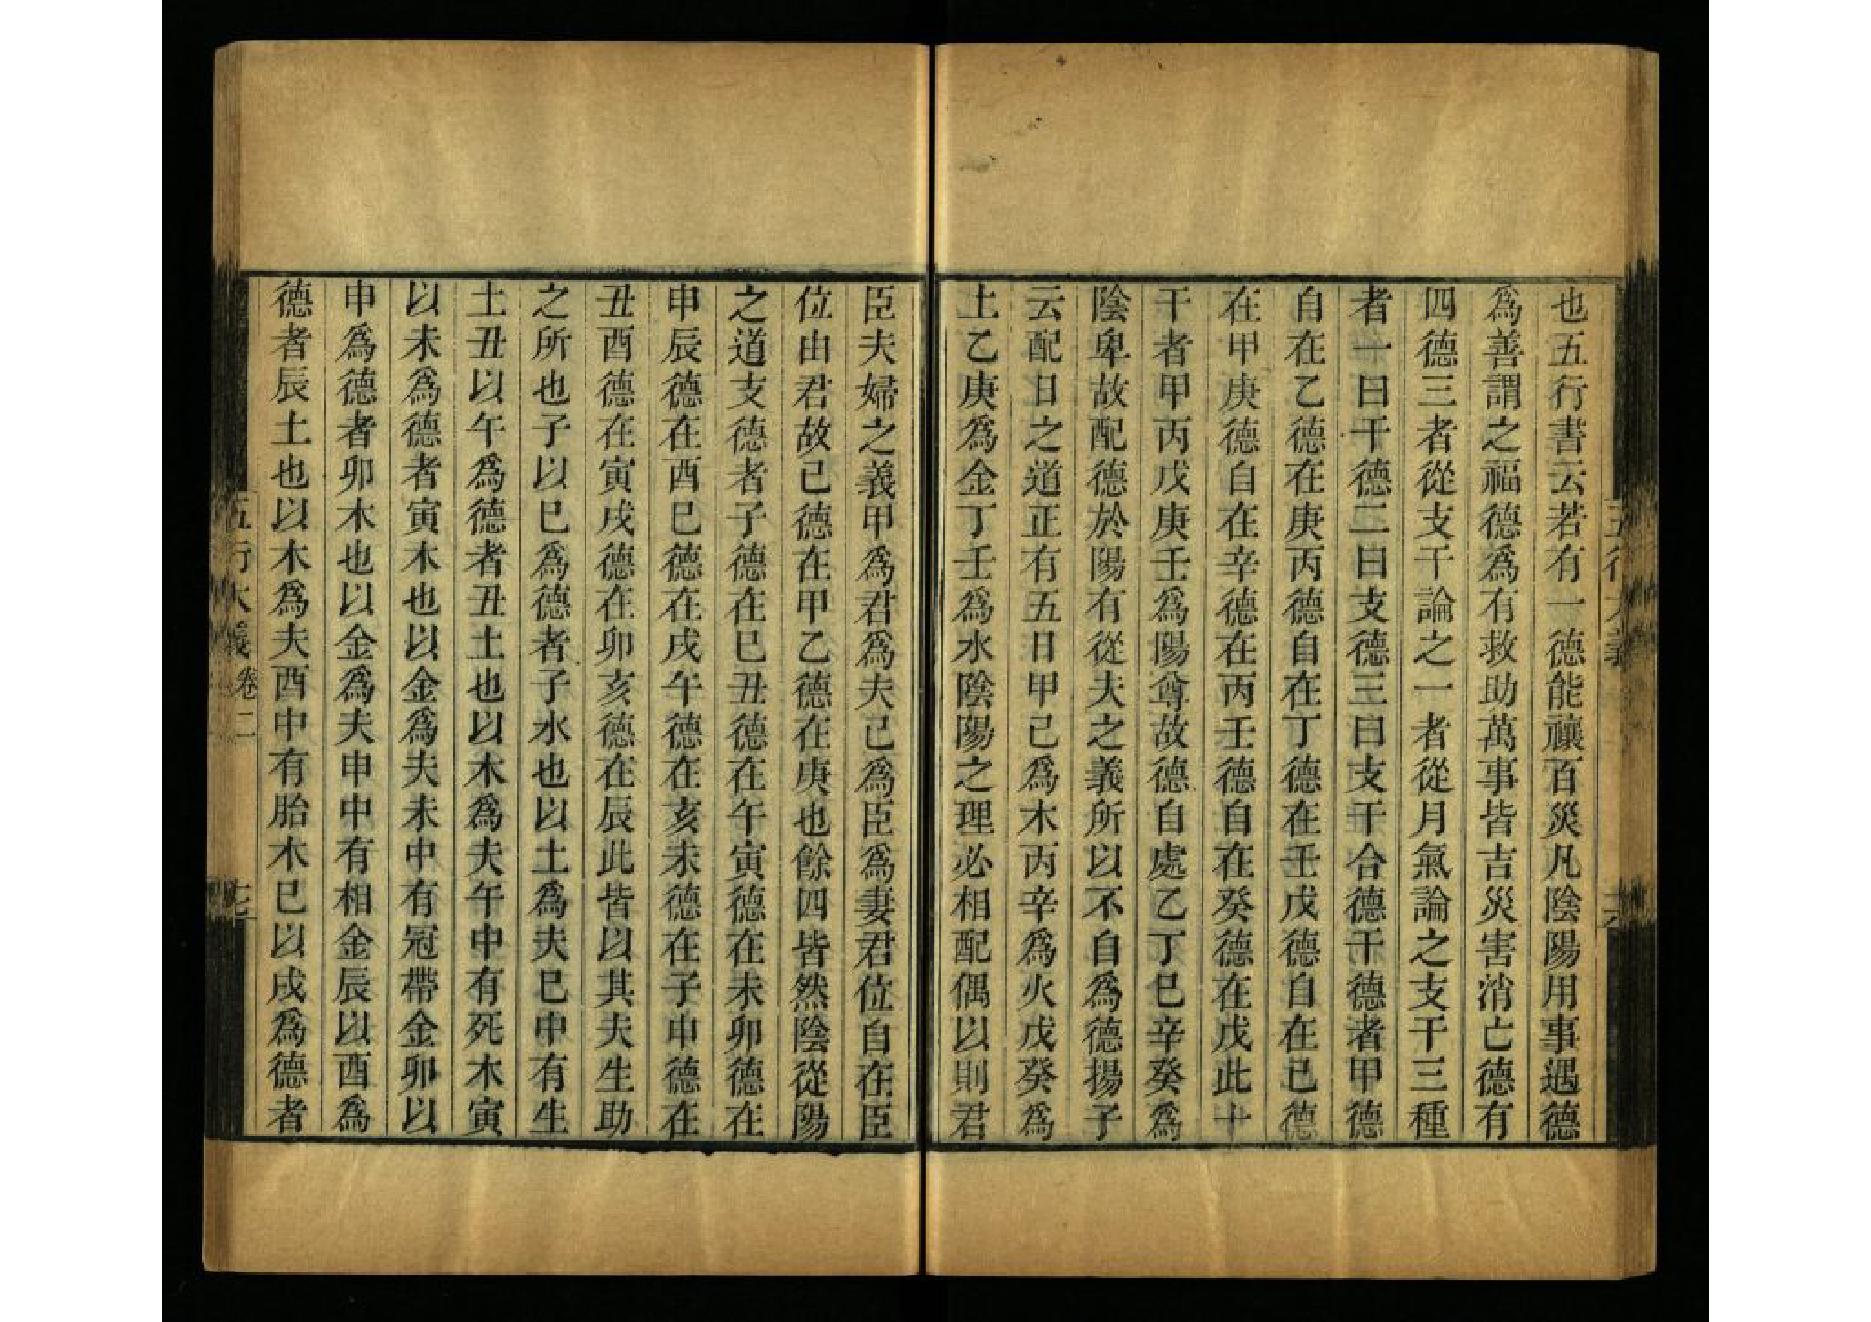 也五行書云若有一德能禳百災凡陰陽用事遇德
爲善謂之福德爲有救助萬事皆吉災害消亡德有
四德三者從支干論之一者從月氣論之支干三種
者一曰干德二曰支德三曰支干合德干德者甲德
自在乙德在庚丙德自在丁德在壬戊德自在己德
在甲庚德自在辛德在丙壬德自在癸德在戊此十
干者甲丙戊庚壬爲陽尊故德自處乙丁巳辛癸爲
陰卑故配德於陽有從夫之義所以不自爲德揚子
云配日之道正有五日甲己爲木丙辛爲火戊癸爲
土乙庚爲金丁壬爲水陰陽之理必相配偶以則君
臣夫婦之義甲爲君爲夫己爲臣爲妻君位自在臣
位由君故己德在甲乙德在庚也餘四皆然陰從陽
之道支德者子德在巳丑德在午寅德在未卯德在
申辰德在酉巳德在戌午德在亥未德在子申德在
丑酉德在寅戌德在卯亥德在辰此皆以其夫生助
之所也子以巳爲德者子水也以土爲夫巳中有生
土丑以午爲德者丑土也以木爲夫午中有死木寅
以未爲德者寅木也以金爲夫未中有冠帶金卯以
申爲德者卯木也以金爲夫申中有相金辰以酉爲
德者辰土也以木爲夫酉中有胎木巳以戌爲德者
五行大義 卷二